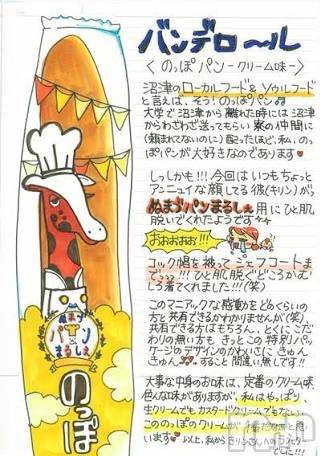 バンデロ〜ル
〈 のっぽパン－クリーム味－ 〉
沼津のローカルフード&ソウルフード
と言えば、そう！のっぽパン
大学で沼津から離れた時には沼津
からわざわざ送ってもらい 寮の仲間に
(頼まれてないのに) 配ったほど、私、のっ
ぽパンが大好きなのであります♥
しっかも!!! 今回はいつもちょっと
アンニュイな顔してる彼(キリン)が、
ぬまづパンまるしぇ用にひと肌
脱いでくれたようです
おおおおお!!!
コック帽を被ってシェフコートま
でっっっ!!! ひと肌脱ぐどころかむし
ろ着てくれました!!!(笑)
このマニアックな感動をどのくらいの
方と共有できるかわかりませんが(笑)、
共有できる方はもちろん、とくにこだ
わりの無い方も きっとこの特別パッ
ケージのデザインのかわいさに きゅん
きゅん すること間違い無しです!!
大事な中身のお味は、定番のクリーム味。
色んな味がありますが、私はやっぱり、
生クリームでもカスタードクリームでもない、
こののっぽのクリームが
います♥ 以上、私から
でした!!!
ぬまづ
パン
まるしぇ
のっぽ